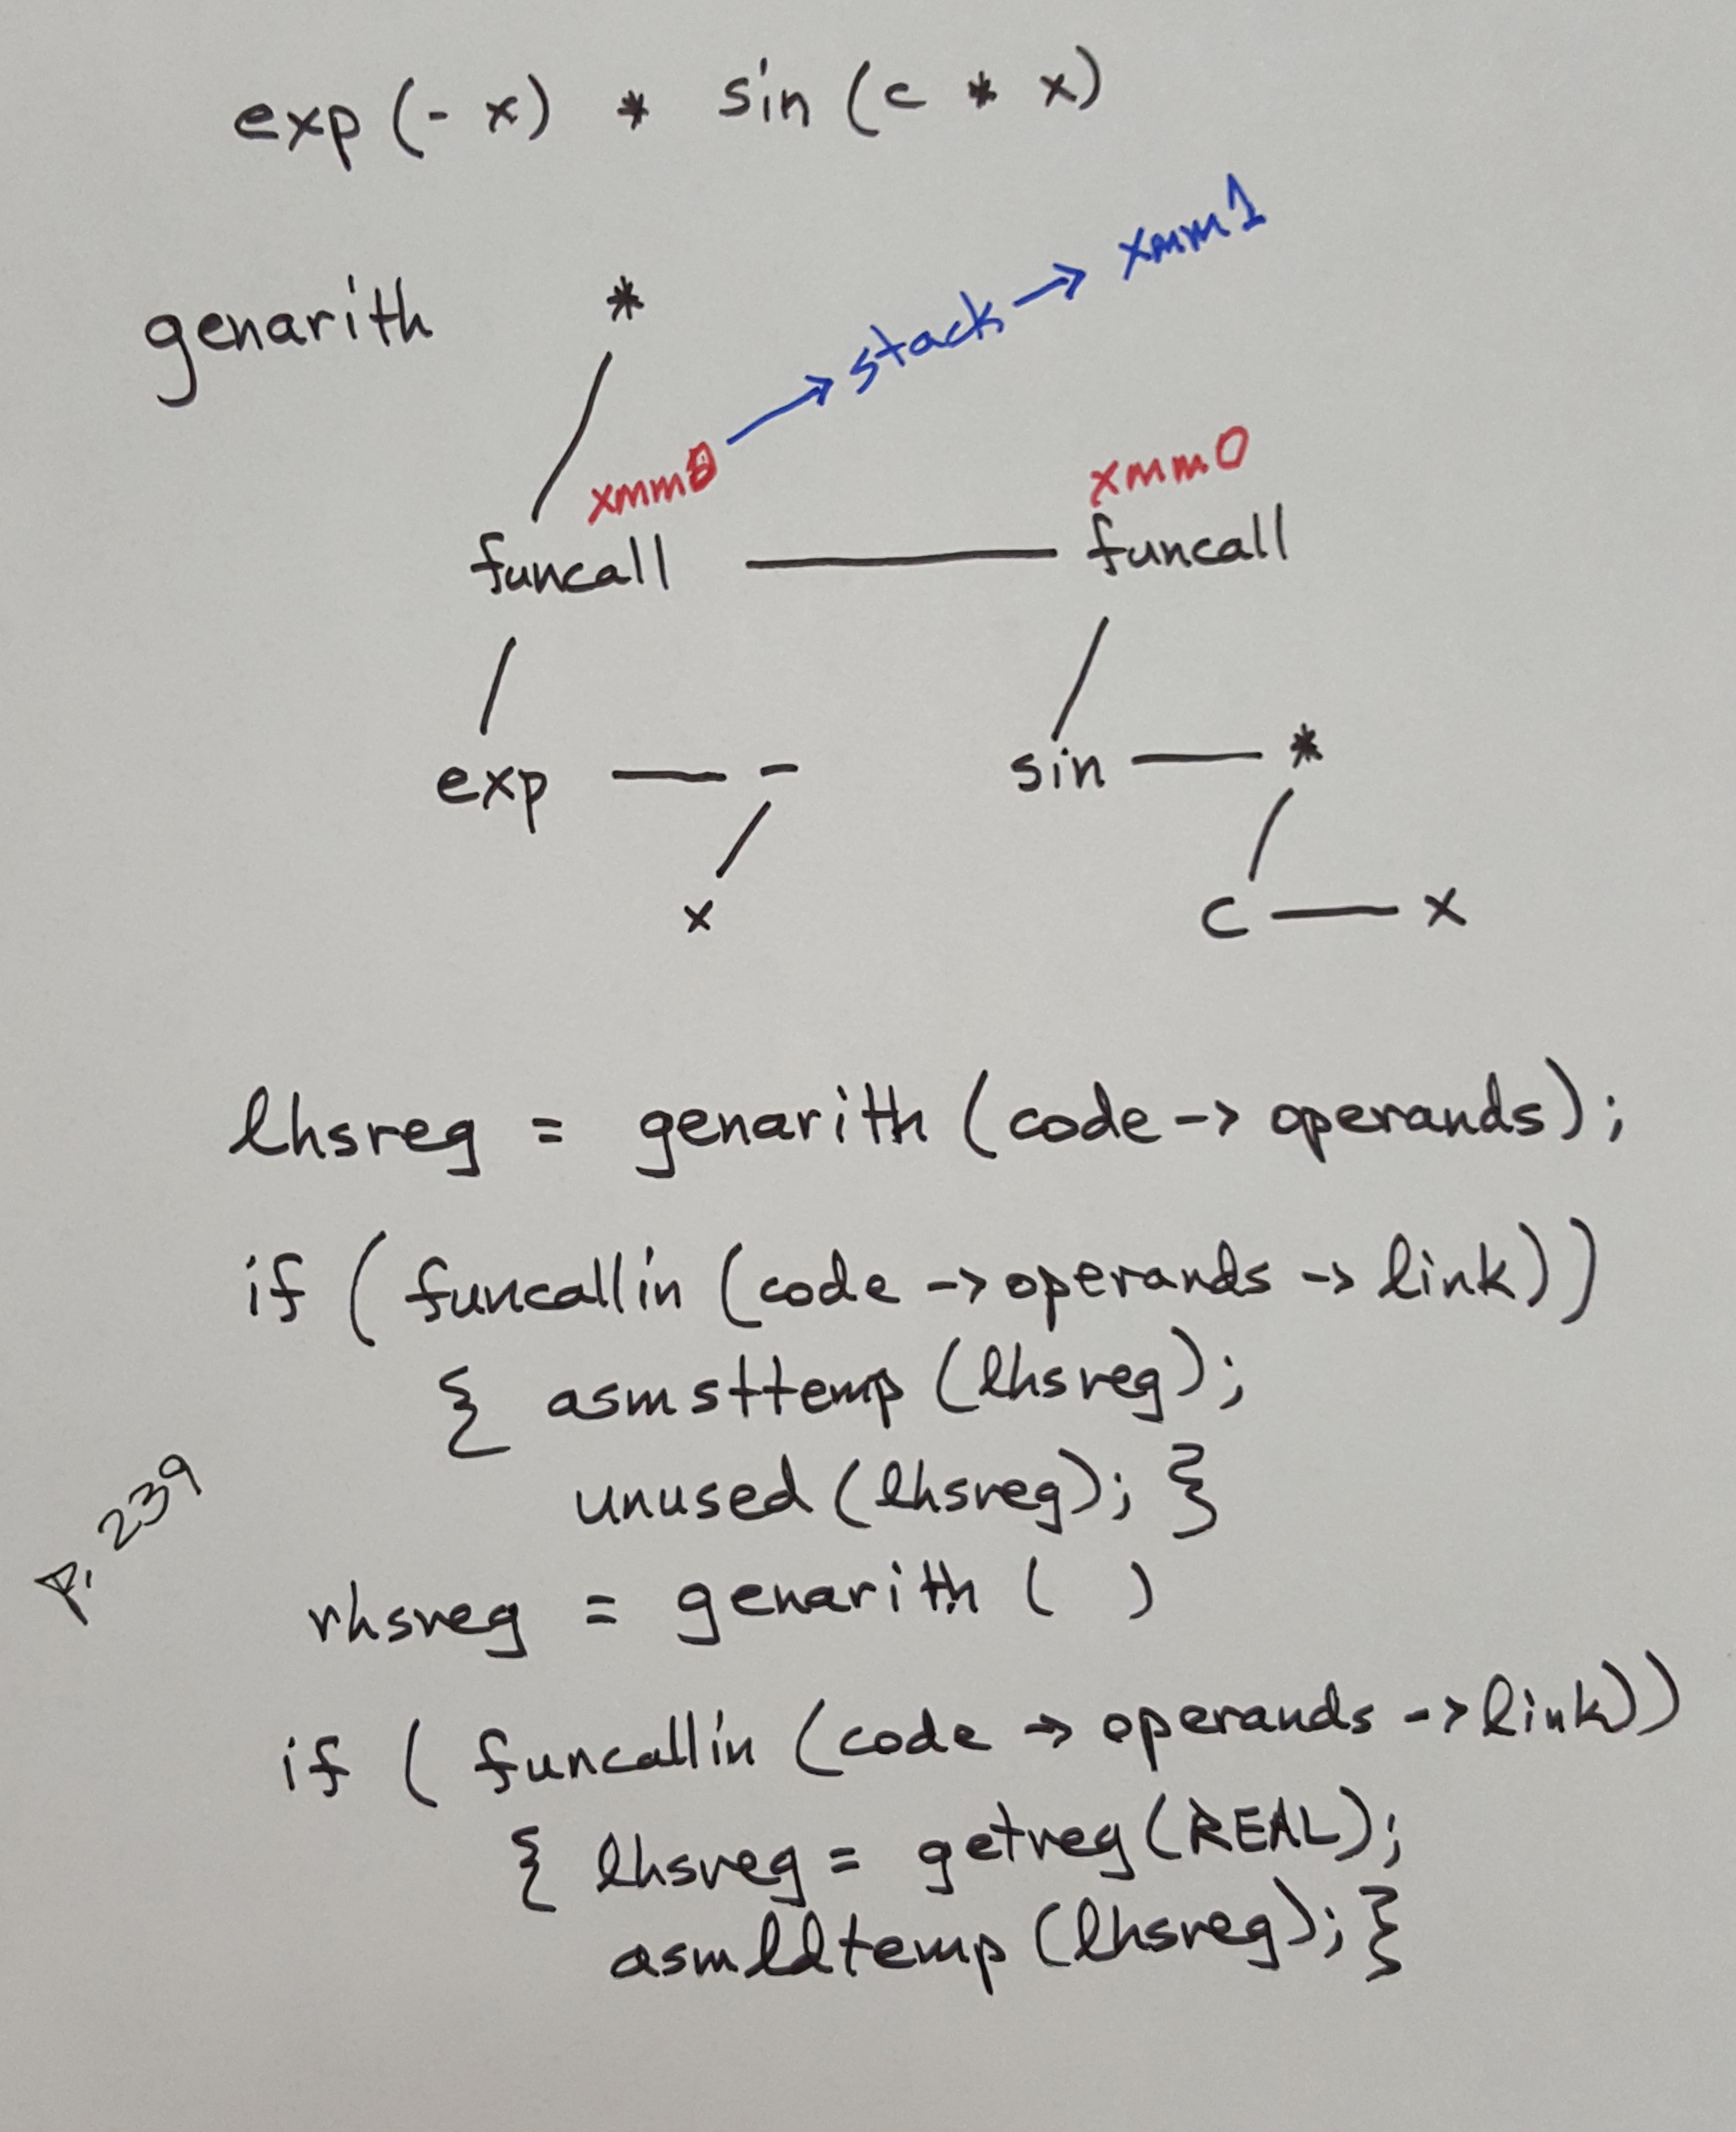 exp (- x) * sin (c * x)
genarith *
→ stack → xmm1
xmm0 xmm0
funcall funcall
exp - sin *
x c x
lhsreg = genarith (code -> operands);
if ( funcallin (code -> operands -> link))
{ asmsttemp (lhsreg);
unused (lhsreg); }
p. 239
rhsreg = genarith ( )
if ( funcallin (code -> operands -> link))
{ lhsreg = getreg (REAL);
asmldtemp (lhsreg); }